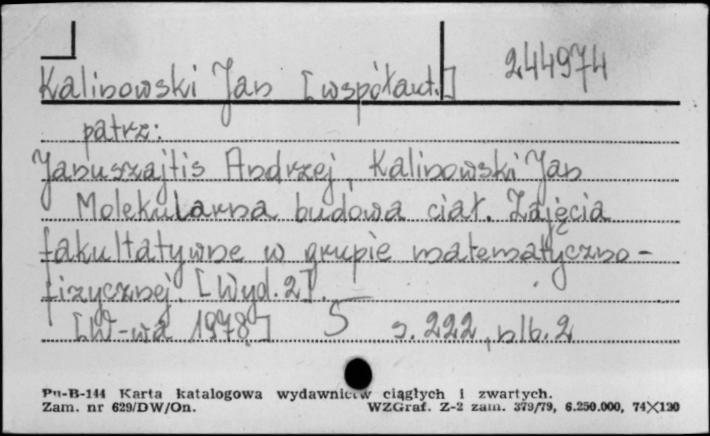 244974
Kalinowski Jan [współaut.]
patrz:
Januszajtis Andrzej, Kalinowski Jan
Molekularna budowa ciał. Zajęcia
fakultatywne w grupie matematyczno-
fizycznej. [Wyd. 2].
[W-wa 1978] 5 s. 222, nlb. 2
Pu-B-144 Karta katalogowa wydawnictw ciągłych i zwartych.
Zam. nr 629/DW/On. WZGraf. Z-2 zam. 379/79, 6.250.000, 74×120